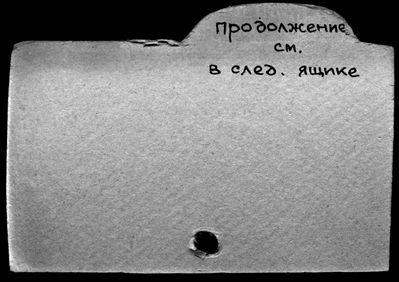 продолжение
см.
в след. ящике